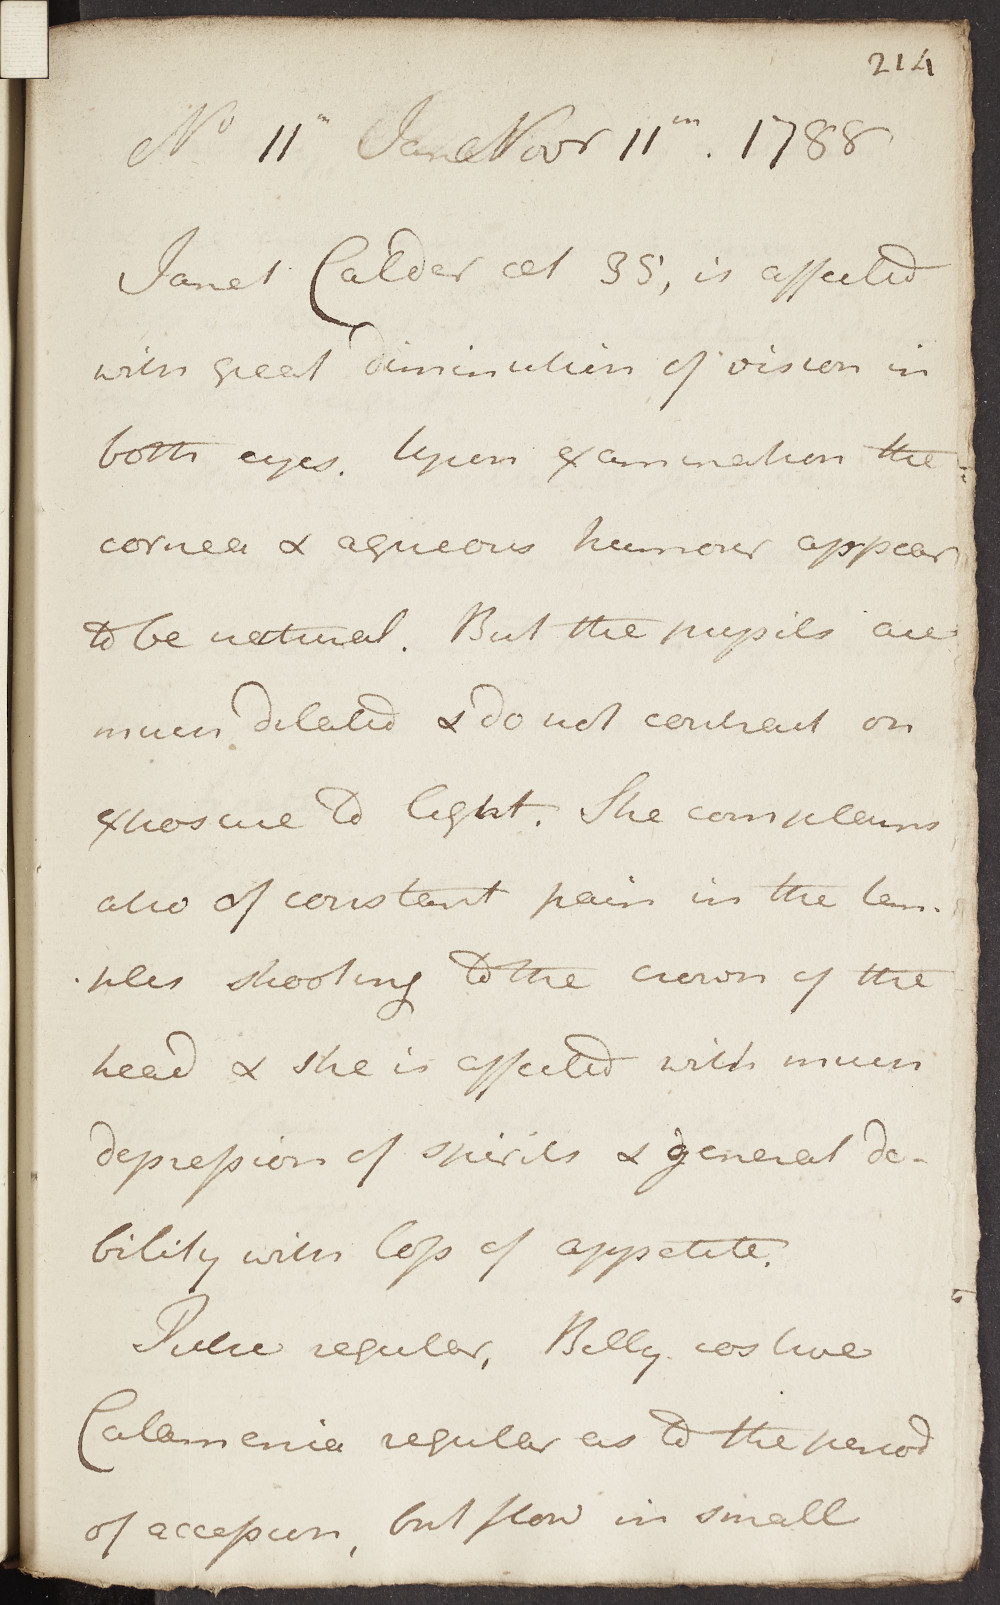 214
No 11th Novr 11th. 1788
Janet Calder aet 35, is affected
with great diminution of vision in
both eyes. Upon examination the
cornea & aqueous humour appear
to be natural. But the pupils are
much dilated & do not contract on
exposure to light. She complains
also of constant pain in the tem-
-ples shooting to the crown of the
head & she is affected with much
depression of spirits & general de-
bility with loss of appetite.
Pulse regular, Belly costive
Catamenia regular as to the period
of accession, but flow in small